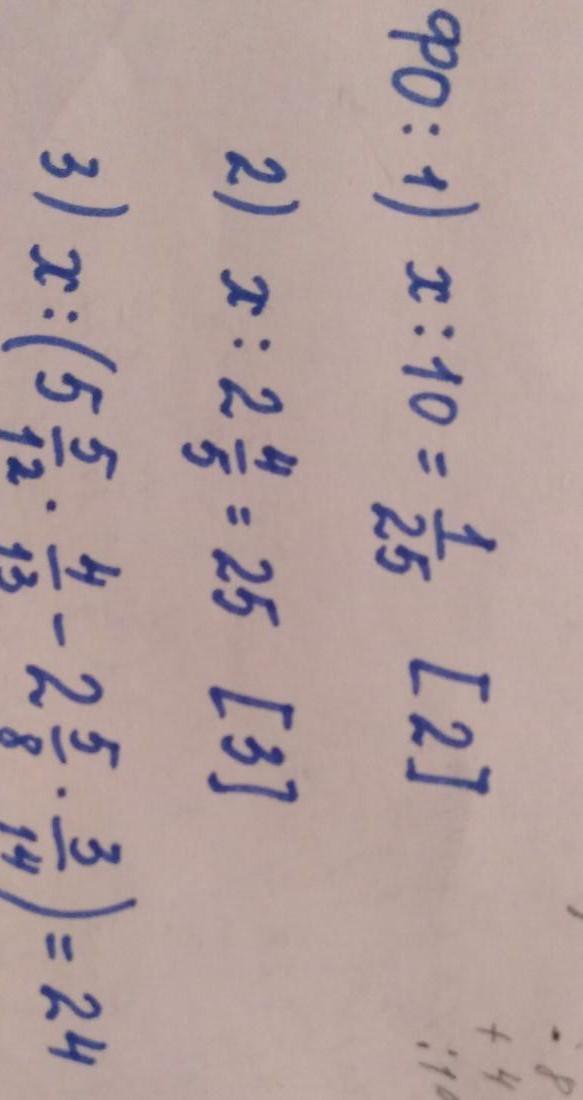 ФО: 1) x : 10 = 1/25 [2]
2) x : 2 4/5 = 25 [3]
3) x : (5 5/12 · 4/13 - 2 5/8 · 3/14) = 24